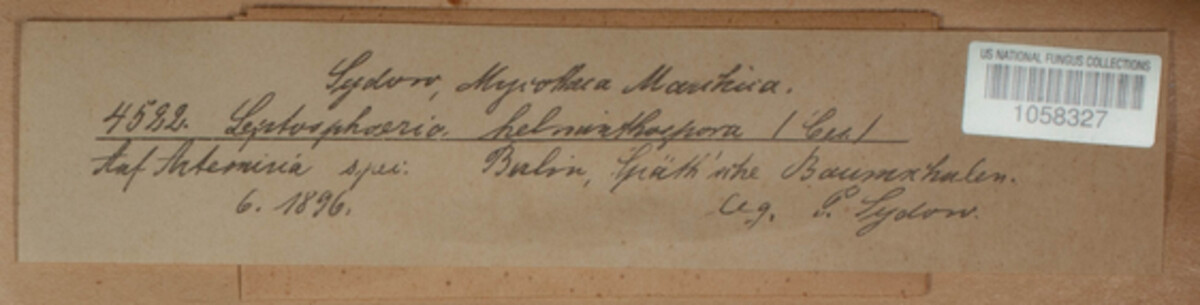 Sydow, Mycotheca Marchica.
4522. Leptosphaeria helminthospora (Ces.)
Auf Artemisia spec. Berlin, Späth'sche Baumschulen.
6. 1896. leg. P. Sydow.
US NATIONAL FUNGUS COLLECTIONS
1058327